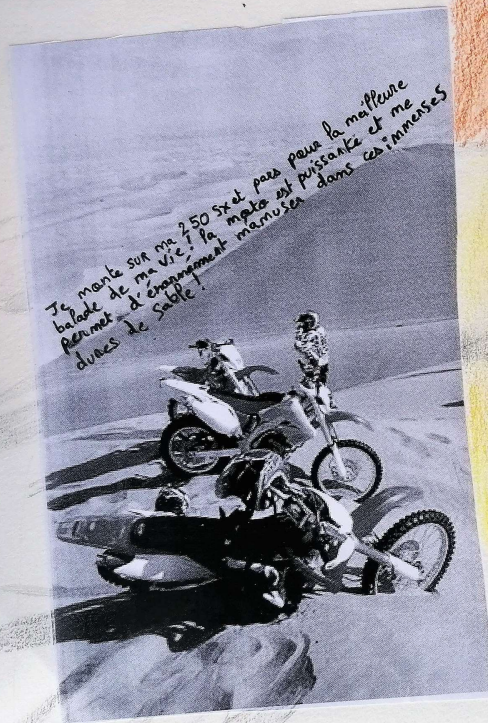 Je monte sur ma 250 sx et pars pour la meilleure
balade de ma vie! la moto est puissante et me
permet d'énormément mamuser dans ces immenses
dunes de sable!